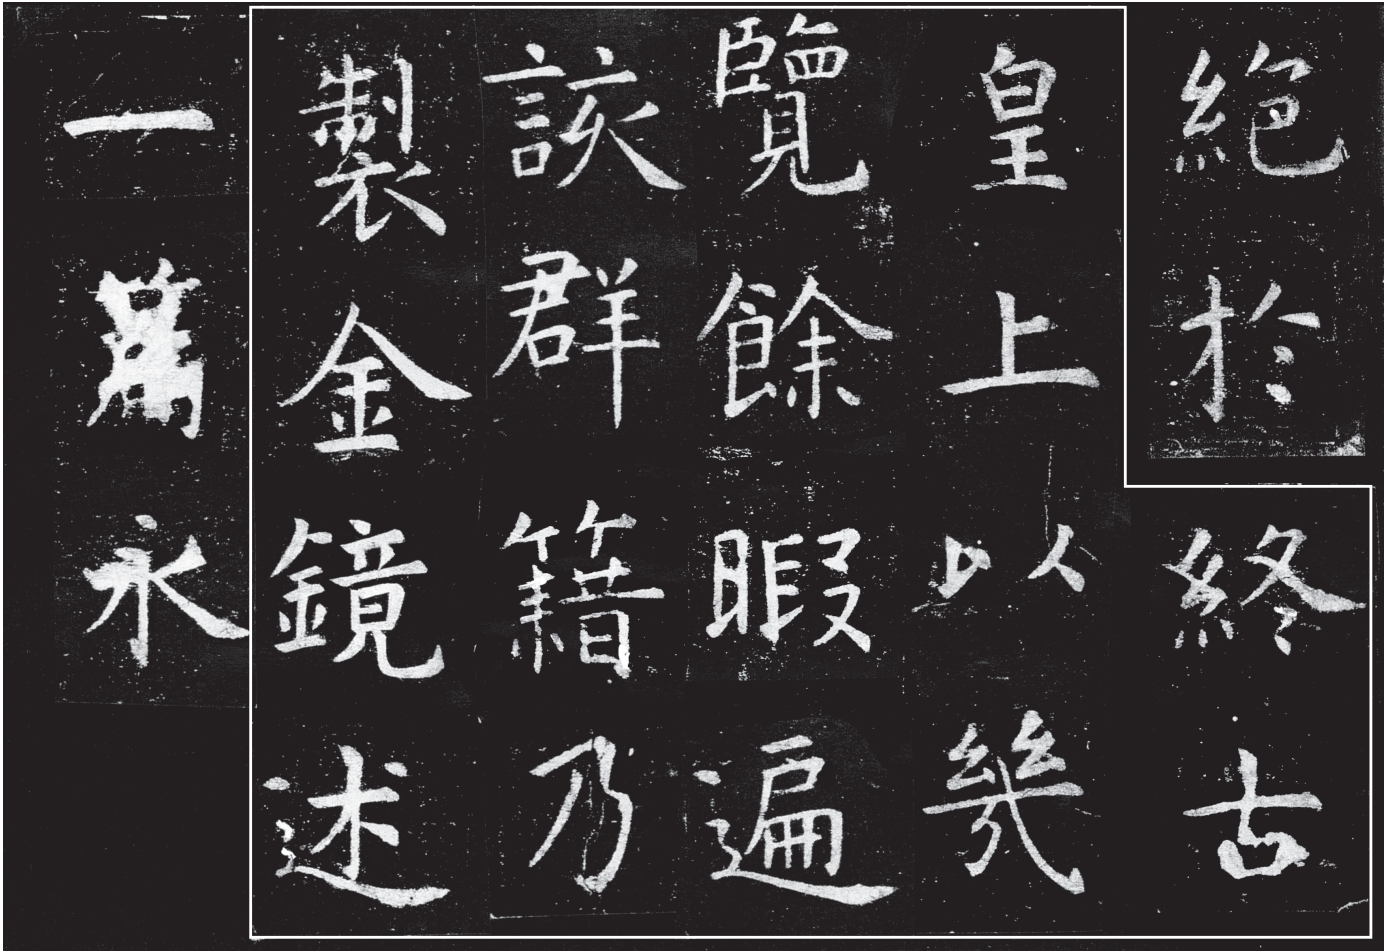 絕於終古
皇上以幾
覽餘暇遍
該群籍乃
製金鏡述
一萬永